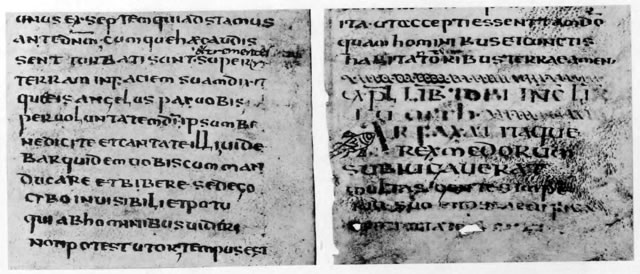 unus ex septem qui adstamus
ante dnm, cumque haec audis
et trementes
sent turbati sunt super
terram in faciem suam dixit
que eis angelus pax uobis
per uoluntatem di ipsum be
nedicite et cantate illi uide
bar quidem uobiscum man
ducare et bibere sed ego
cybo inuisibili et potu
qui ab hominibus uideri
non potest utor, tempus est
ita ut accepti essent tam do
quam hominibus et cunctis
habitatoribus terrae amen
expl lib tobi inc li
iudith
Arfaxat itaque
rex medorum
subiugauerat
multas gentes
suo